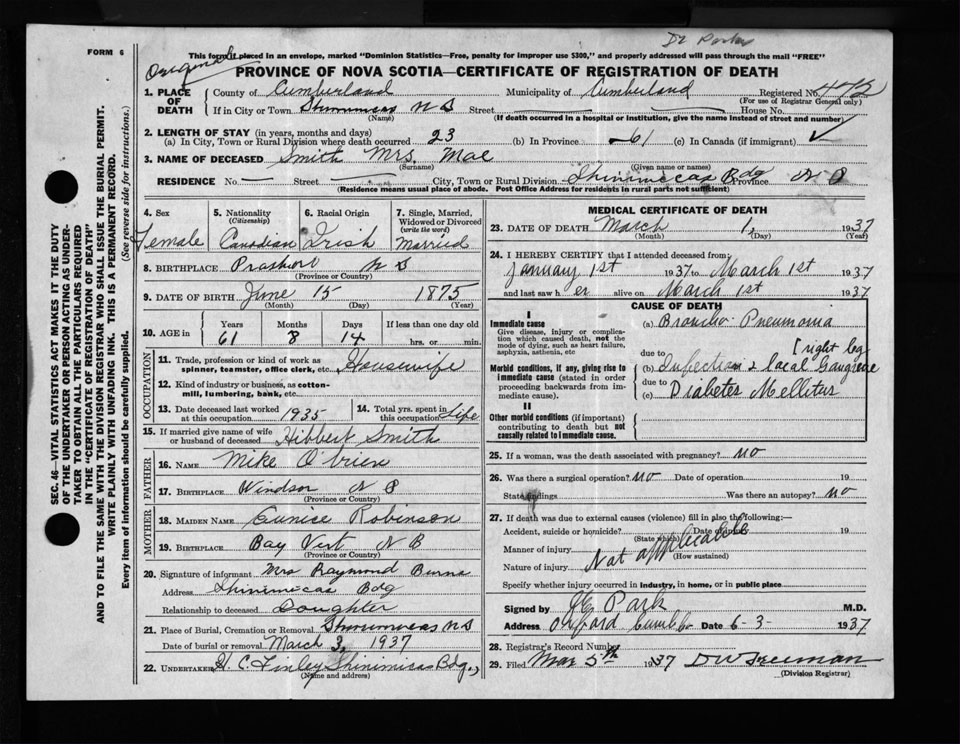 Dr Park
FORM 6
This form if placed in an envelope, marked "Dominion Statistics—Free, penalty for improper use $300," and properly addressed will pass through the mail "FREE"
Original
PROVINCE OF NOVA SCOTIA—CERTIFICATE OF REGISTRATION OF DEATH
1. PLACE OF DEATH
County of Cumberland Municipality of Cumberland Registered No.
(For use of Registrar General only)
If in City or Town N S Street — House No. —
(Name) (If death occurred in a hospital or Institution, give the name instead of street and number)
2. LENGTH OF STAY (in years, months and days)
(a) In City, Town or Rural Division where death occurred 23 (b) In Province 61 (c) In Canada (if immigrant) ✓
3. NAME OF DECEASED Smith Mrs. Mae
(Surname) (Given name or names)
RESIDENCE No. — Street — City, Town or Rural Division Shinimicas Bdg Province N S
(Residence means usual place of abode. Post Office Address for residents in rural parts not sufficient)
SEC. 46—VITAL STATISTICS ACT MAKES IT THE DUTY
OF THE UNDERTAKER OR PERSON ACTING AS UNDER-
TAKER TO OBTAIN ALL THE PARTICULARS REQUIRED
IN THE "CERTIFICATE OF REGISTRATION OF DEATH"
AND TO FILE THE SAME WITH THE DIVISION REGISTRAR WHO SHALL ISSUE THE BURIAL PERMIT.
WRITE PLAINLY WITH UNFADING INK. THIS IS A PERMANENT RECORD.
Every item of information should be carefully supplied. (See reverse side for instructions.)
4. Sex
Female
5. Nationality
(Citizenship)
Canadian
6. Racial Origin
Irish
7. Single, Married,
Widowed or Divorced
(write the word)
Married
8. BIRTHPLACE N S
(Province or Country)
9. DATE OF BIRTH June 15 1875
(Month) (Day) (Year)
10. AGE in
Years Months Days If less than one day old
61 8 14 hrs. or min.
OCCUPATION
11. Trade, profession or kind of work as
spinner, teamster, office clerk, etc. Housewife
12. Kind of industry or business, as cotton-
mill, lumbering, bank, etc.
13. Date deceased last worked
at this occupation 1935
14. Total yrs. spent in
this occupation Life
15. If married give name of wife
or husband of deceased Hibbert Smith
FATHER
16. NAME Mike O'brien
17. BIRTHPLACE Windsor N S
(Province or Country)
MOTHER
18. MAIDEN NAME Eunice Robinson
19. BIRTHPLACE Bay Vert N B
(Province or Country)
20. Signature of informant Mrs Raymond Burns
Address Shinimicas Bdg
Relationship to deceased Daughter
21. Place of Burial, Cremation or Removal N S
Date of burial or removal March 3, 1937
22. UNDERTAKER H. C. Finley Shinimicas Bdg.,
(Name and address)
MEDICAL CERTIFICATE OF DEATH
23. DATE OF DEATH March 1, 1937
(Month) (Day) (Year)
24. I HEREBY CERTIFY that I attended deceased from
January 1st 1937 to March 1st 1937
and last saw h er alive on March 1st 1937
CAUSE OF DEATH
I
Immediate cause
Give disease, injury or complication which caused death, not the mode of dying, such as heart failure, asphyxia, asthenia, etc
(a) Broncho-Pneumonia
due to [right leg
Morbid conditions, if any, giving rise to immediate cause (stated in order proceeding backwards from immediate cause).
(b) Infection & local Gangrene
due to
(c) Diabetes Mellitus
II
Other morbid conditions (if important) contributing to death but not causally related to immediate cause.
25. If a woman, was the death associated with pregnancy? no
26. Was there a surgical operation? no Date of operation 19
State findings Was there an autopsy? no
27. If death was due to external causes (violence) fill in also the following:—
Accident, suicide or homicide? Date of injury 19
(State which)
Manner of injury
(How sustained)
Nature of injury Not applicable
Specify whether injury occurred in industry, in home, or in public place
Signed by Park M.D.
Address Oxford Cumb Co Date 6-3- 1937
28. Registrar's Record Number
29. Filed Mar 5th 1937 D W Freeman
(Division Registrar)